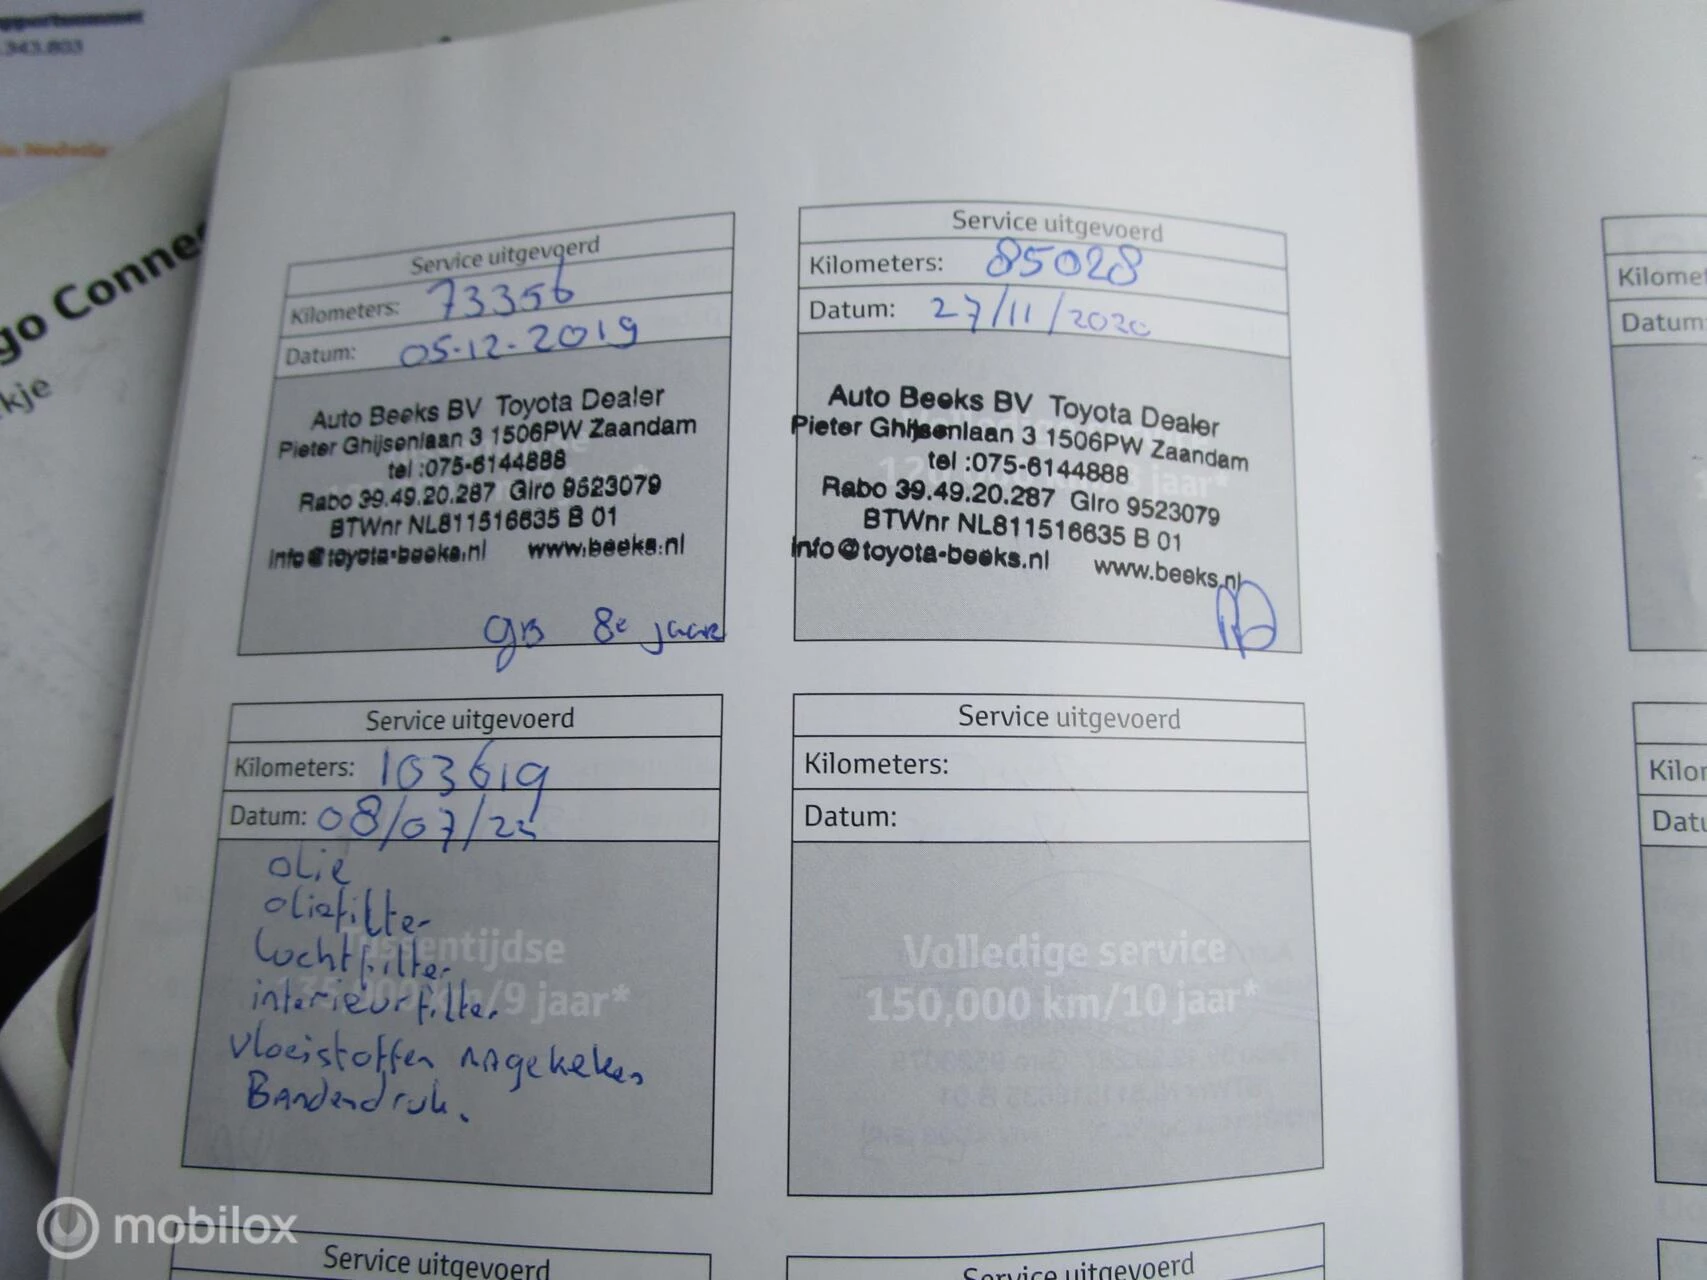 .343.803
go Connec
kje
Service uitgevoerd
Kilometers: 73356
Datum: 05-12-2019
Auto Beeks BV Toyota Dealer
Pieter Ghijsenlaan 3 1506PW Zaandam
tel :075-6144888
Rabo 39.49.20.287 Giro 9523079
BTWnr NL811516635 B 01
info@toyota-beeks.nl www.beeks.nl
8e jaar
Service uitgevoerd
Kilometers: 85028
Datum: 27/11/2020
Auto Beeks BV Toyota Dealer
Pieter Ghijsenlaan 3 1506PW Zaandam
tel :075-6144888
Rabo 39.49.20.287 Giro 9523079
BTWnr NL811516635 B 01
info@toyota-beeks.nl www.beeks.nl
Service uitgevoerd
Kilometers: 103619
Datum: 08/07/22
olie
oliefilter
Luchtfilter
interieurfilter
Vloeistoffen nagekeken
Bandendruk.
Tussentijdse
135,000 km/9 jaar*
Service uitgevoerd
Kilometers:
Datum:
Volledige service
150,000 km/10 jaar*
Service uitgevoerd
Service uitgevoerd
Kilomet
Datum
Kilor
Datu
mobilox